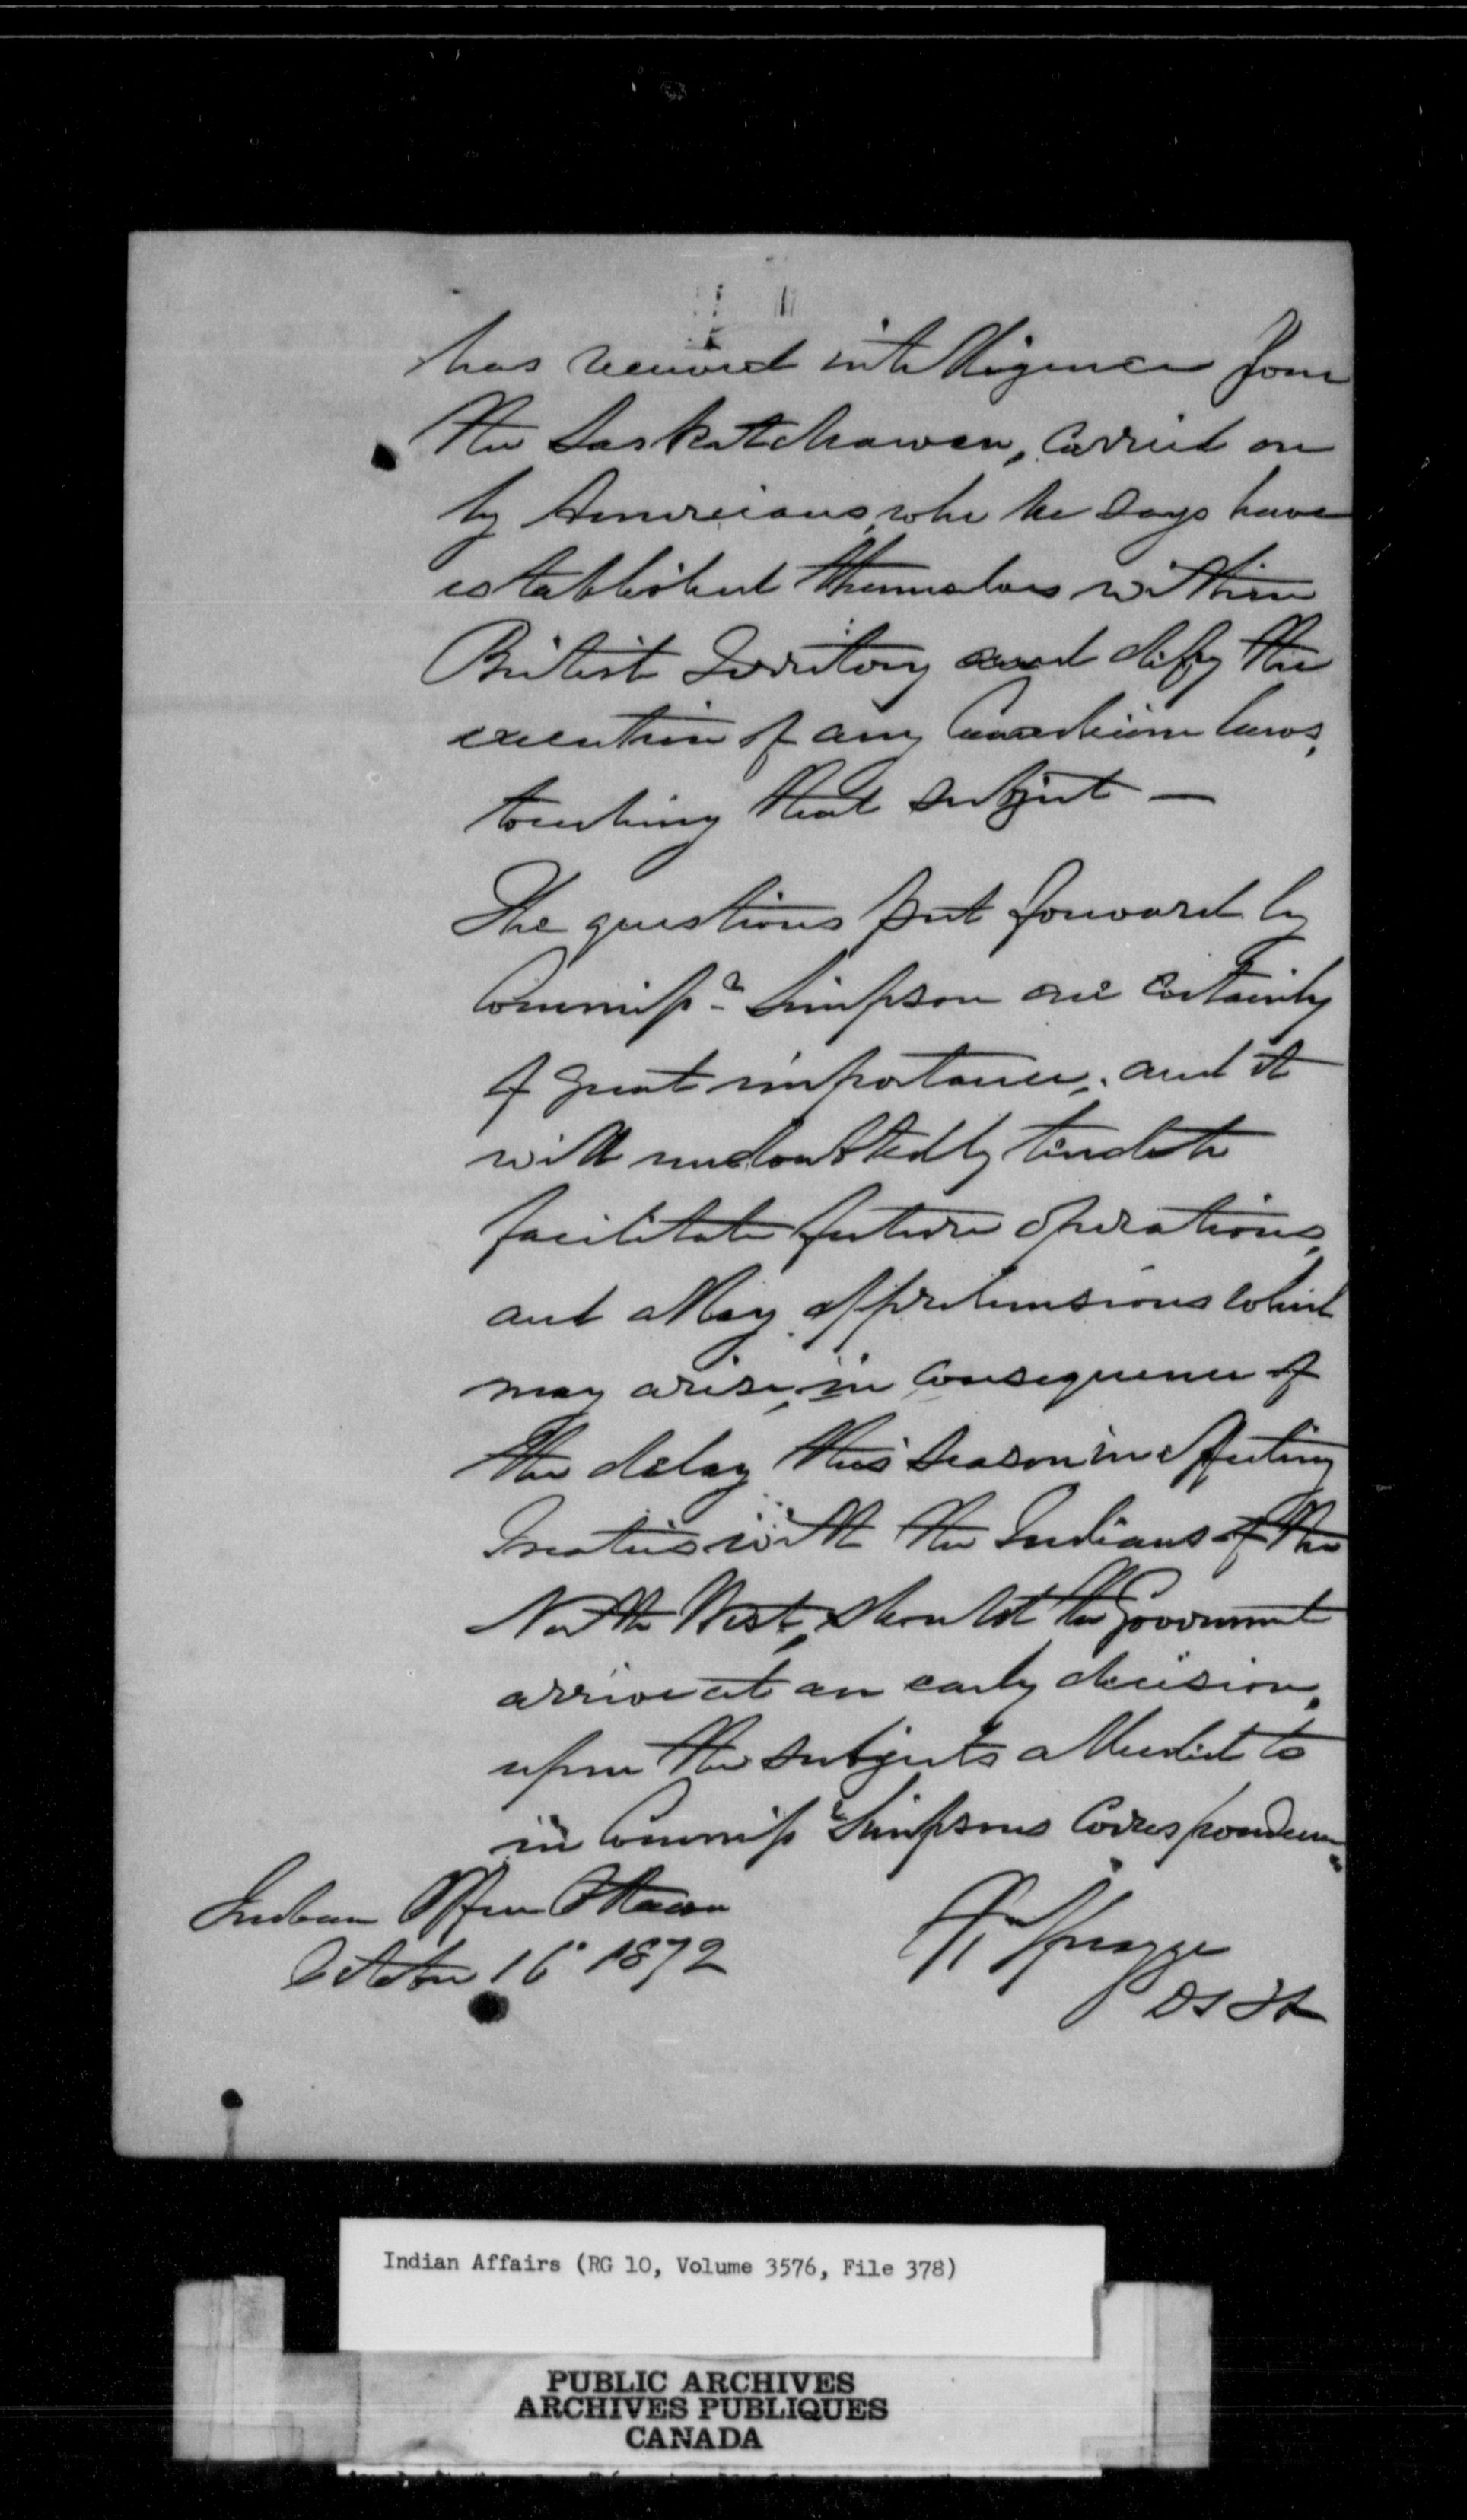 has received intelligence from
the Saskatchawan, carried on
by Americans, who he says have
established themselves within
British Territory and defy the
execution of any Canadian laws,
touching that subject —
The questions put forward by
Commissr Simpson are certainly
of great importance, and it
will undoubtedly tend to
facilitate future operations,
and allay apprehensions which
may arise, in consequence of
the delay this season in effecting
Treaties with the Indians of the
North West, should the Government
arrive at an early decision,
upon the subjects alluded to
in Commissr Simpsons Correspondence.
Indian Office Ottawa
October 16 1872
W. Spragge
DSIA
Indian Affairs (RG 10, Volume 3576, File 378)
PUBLIC ARCHIVES
ARCHIVES PUBLIQUES
CANADA